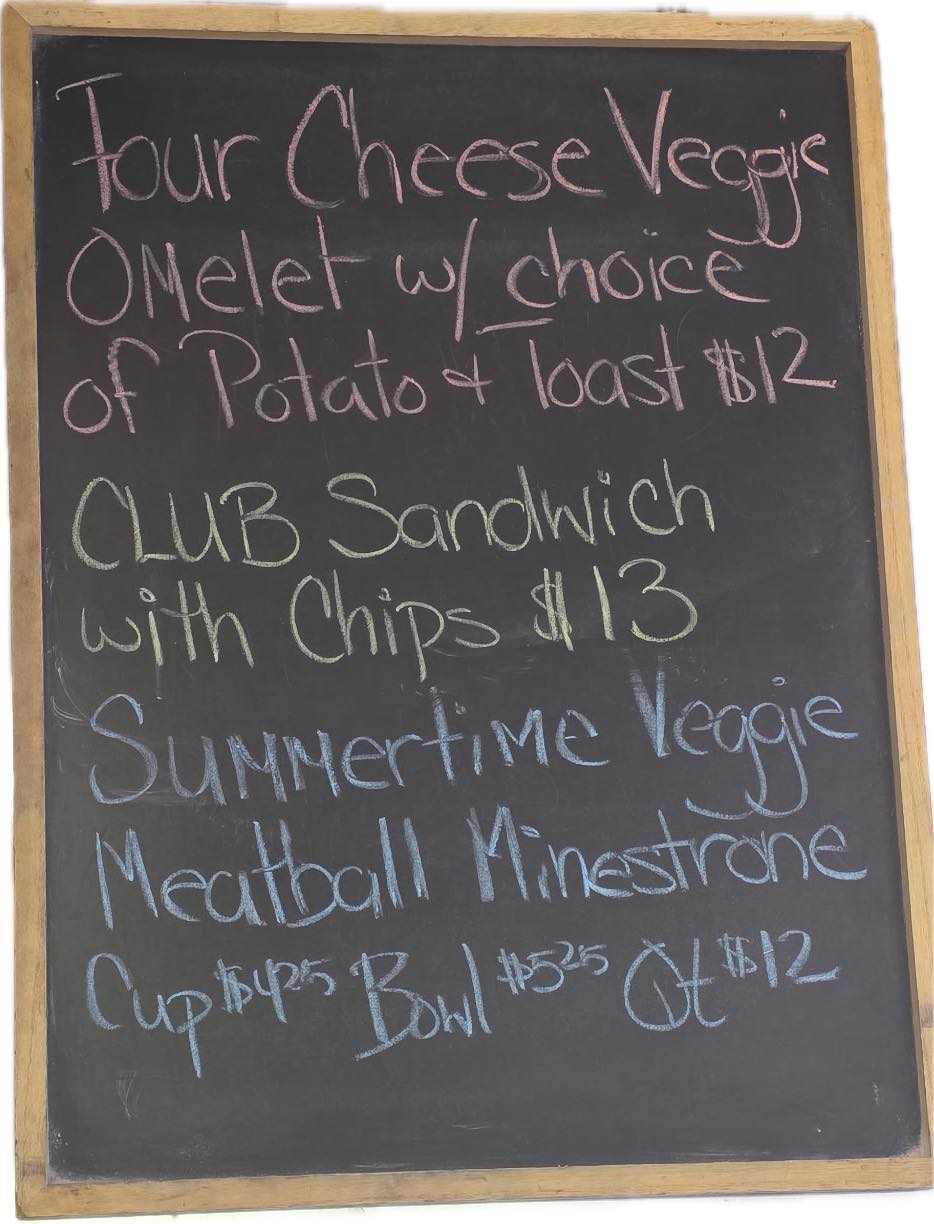 Four Cheese Veggie
Omelet w/ choice
of Potato & Toast $12
CLUB Sandwich
with Chips $13
Summertime Veggie
Meatball Minestrone
Cup $425 Bowl $525 Qt $12